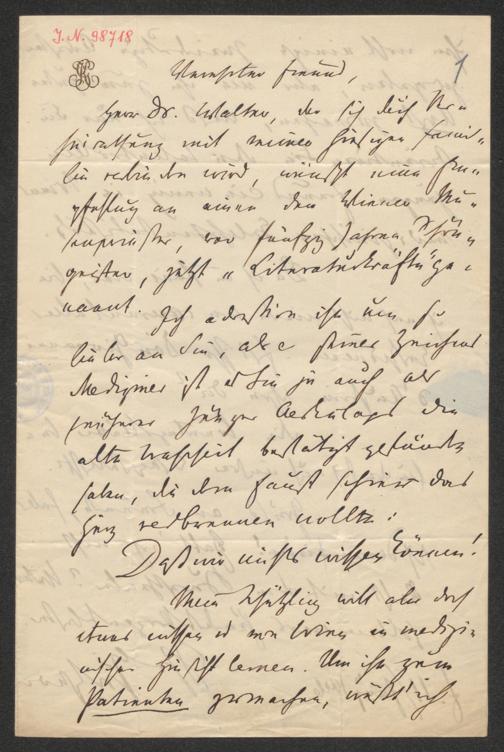 I. N. 98718
1
Verehrter Freund,
Herr Dr. Walter, der sich durch Ver-
heirathung mit meiner hiesigen Fami-
lie verbinden wird, wünscht eine Em-
pfehlung an einen der Wiener Mu-
senpriester, vor fünfzig Jahren Schön-
geister, jetzt "Literaturkräfte" ge-
nannt. Ich adressire ihn um so
lieber an Sie, als seines Zeichens
Mediziner ist er Sie ja auch als
früherer Jünger Aeskulaps die
alte Wahrheit bestätigt gefunden
haben, die dem Faust schier das
Herz verbrennen wollte:
Daß wir nichts wissen können!
Mein Schützling will aber doch
etwas wissen u von Wien in medizi-
nischer Hinsicht lernen. Um ihn zum
Patienten zu machen, wüßt' ich